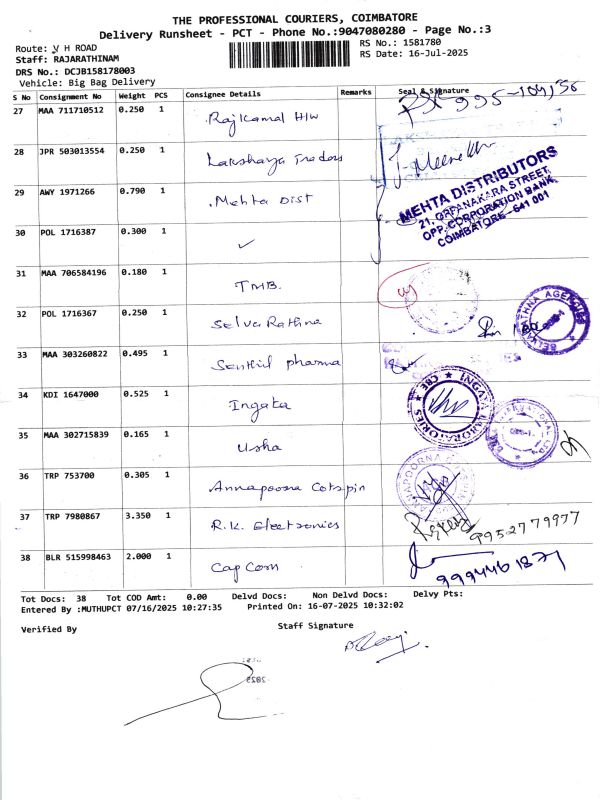 THE PROFESSIONAL COURIERS, COIMBATORE
Delivery Runsheet - PCT - Phone No.:9047080280 - Page No.:3
Route: V H ROAD
RS No.: 1581780
Staff: RAJARATHINAM
RS Date: 16-Jul-2025
DRS No.: DCJB158178003
Vehicle: Big Bag Delivery
S No Consignment No Weight PCS Consignee Details Remarks Seal & Signature
27 MAA 711710512 0.250 1 Rajkamal H/W
28 JPR 503013554 0.250 1 Lakshaya Traders
29 AWY 1971266 0.790 1 Mehta Dist
MEHTA DISTRIBUTORS
21, OPPANAKARA STREET,
OPP. CORPORATION BANK,
COIMBATORE - 641 001
30 POL 1716387 0.300 1 ✓
31 MAA 706584196 0.180 1 TMB.
32 POL 1716367 0.250 1 Selva Rathna
33 MAA 303260822 0.495 1 Senthil pharma
34 KDI 1647000 0.525 1 Ingaka
35 MAA 302715839 0.165 1 Usha
36 TRP 753700 0.305 1 Annapoorna Cotspin
37 TRP 7980867 3.350 1 R.K. Electronics 9952779977
38 BLR 515998463 2.000 1 Cap Com
Tot Docs: 38 Tot COD Amt: 0.00 Delvd Docs: Non Delvd Docs: Delvy Pts:
Entered By :MUTHUPCT 07/16/2025 10:27:35 Printed On: 16-07-2025 10:32:02
Verified By Staff Signature